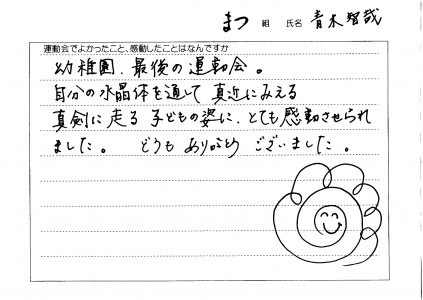 まつ 組 氏名 青木智哉
運動会でよかったこと、感動したことはなんですか
幼稚園、最後の運動会。
自分の水晶体を通して 真近にみえる
真剣に走る 子どもの姿に、とても感動させられ
ました。 どうも ありがとう ございました。